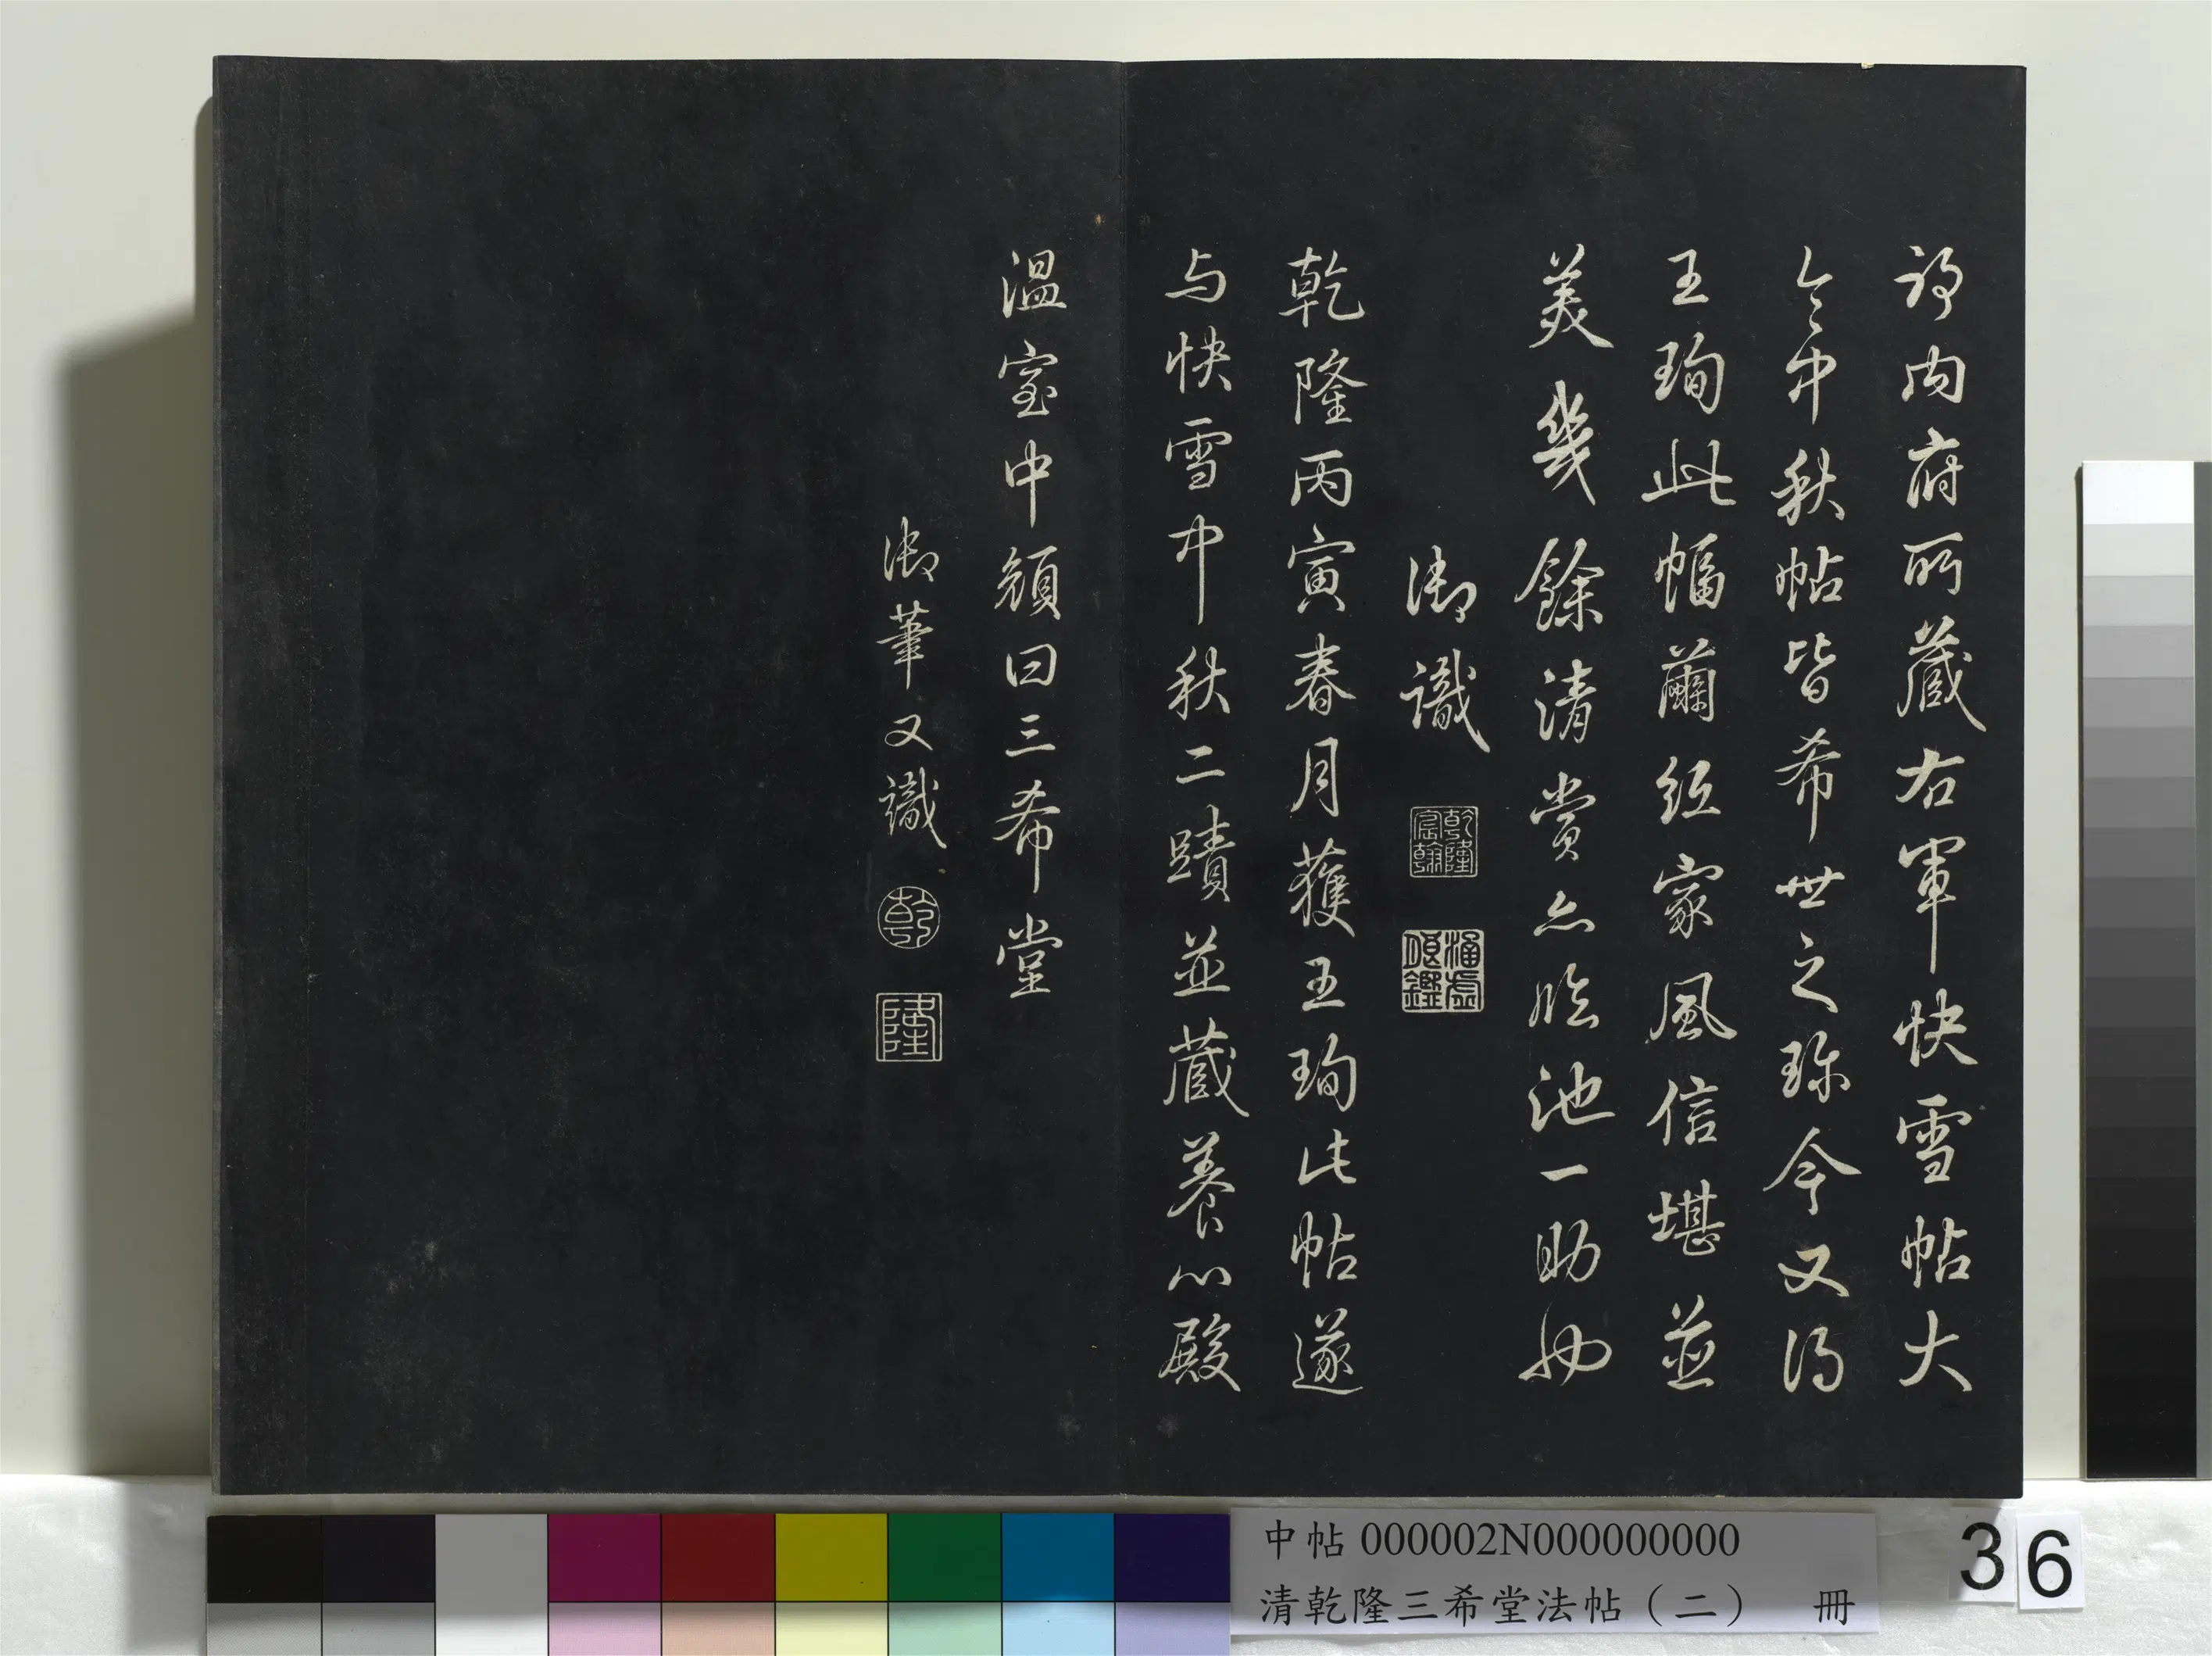 訝內府所藏右軍快雪帖大
令中秋帖皆希世之珎今又得
王珣此幅繭紙家風信堪並
美幾餘清賞亦臨池一助也
御識
乾隆宸翰
乾隆丙寅春月獲王珣此帖遂
与快雪中秋二蹟並藏養心殿
溫室中顏曰三希堂
御筆又識
乾
隆
中帖 000002N000000000
清乾隆三希堂法帖（二） 冊
36